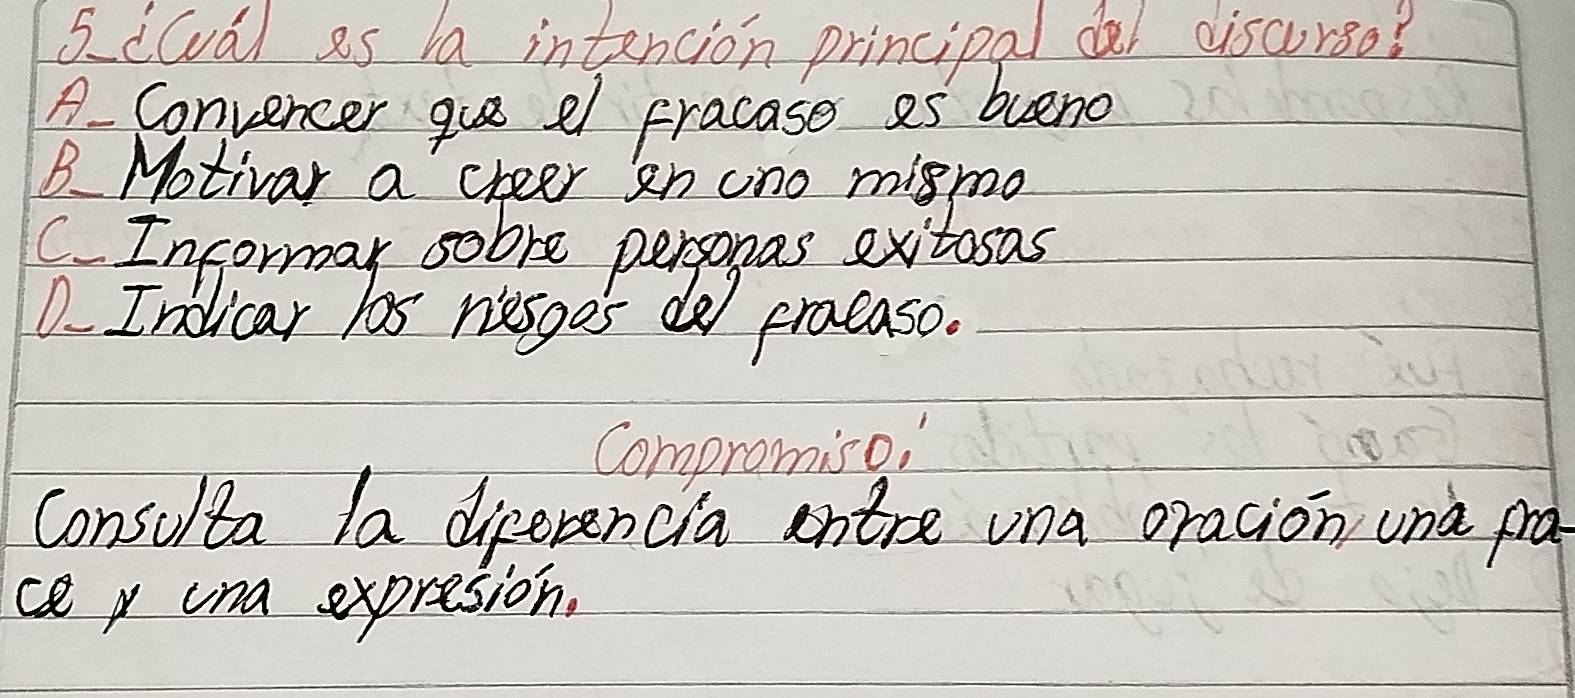 5-¿Cuál es la intención principal del discurso?
A- Convencer que el fracaso es bueno
B- Motivar a creer en uno mismo
C- Informar sobre personas exitosas
D- Indicar los riesgos del fracaso.
Compromiso:
Consulta la diferencia entre una oración, una fra-
ce y una expresión.